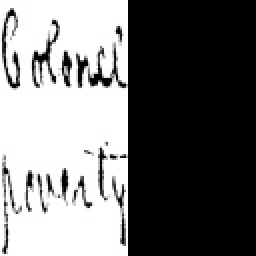 Colonel
poverty